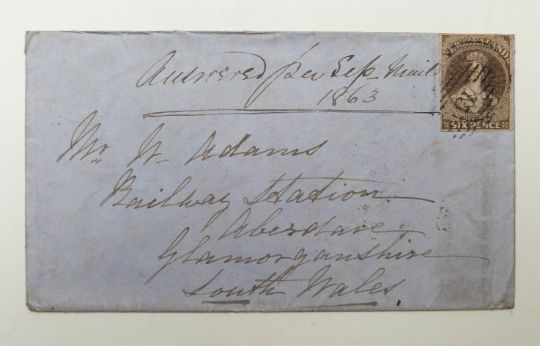 Answered per Sep Mail
1863
NEW ZEALAND
SIX PENCE
Mr W. Adams
Railway Station
Aberdare
Glamorganshire
South Wales